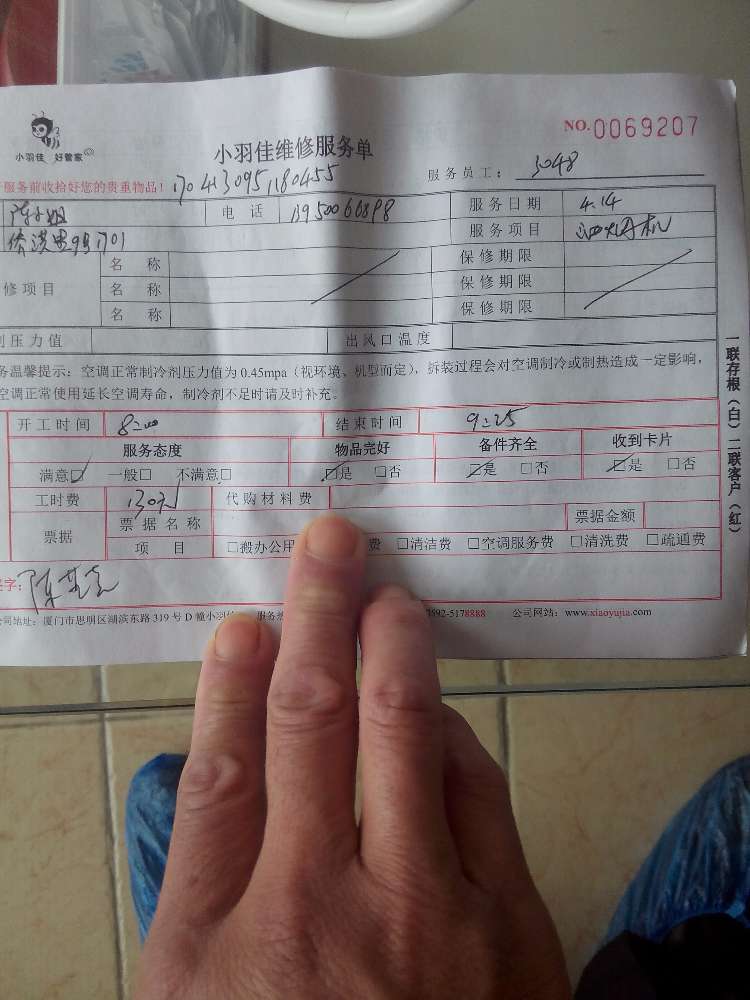 小羽佳 好管家
小羽佳维修服务单
NO.0069207
服务员工: 3048
服务前收拾好您的贵重物品!
陈小姐 电 话 服务日期 4.14
服务项目
名 称 保修期限
修项目 名 称 保修期限
名 称 保修期限
剂压力值 出风口温度
务温馨提示: 空调正常制冷剂压力值为 0.45mpa (视环境、机型而定), 拆装过程会对空调制冷或制热造成一定影响,
空调正常使用延长空调寿命, 制冷剂不足时请及时补充。
开工时间 8:00 结束时间 9:25
服务态度 物品完好 备件齐全 收到卡片
满意☑ 一般□ 不满意□ ☑是 □否 ☑是 □否 ☑是 □否
工时费 130元 代购材料费
票据 票据名称 票据金额
项 目 □搬办公用 费 □清洁费 □空调服务费 □清洗费 □疏通费
签字:
公司地址: 厦门市思明区湖滨东路 319 号 D 幢小羽 服务热 0592-5178888 公司网站: www.xiaoyujia.com
一联存根(白)二联客户(红)